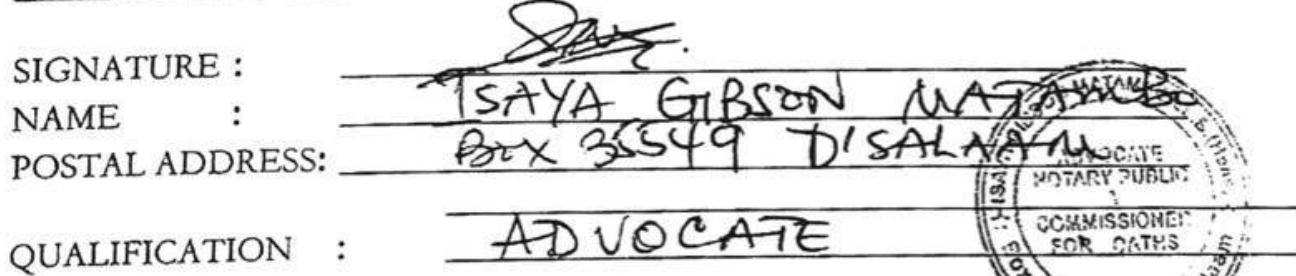 SIGNATURE :
NAME : ISAYA GIBSON MATAMBO
POSTAL ADDRESS: BOX 35549 D'SALAAM
QUALIFICATION : ADVOCATE
MATAM
ADVOCATE
NOTARY PUBLIC
COMMISSIONER
FOR OATHS